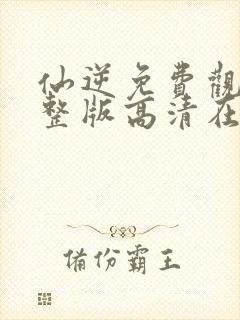 仙逆免費觀
整版高清在
備份霸王